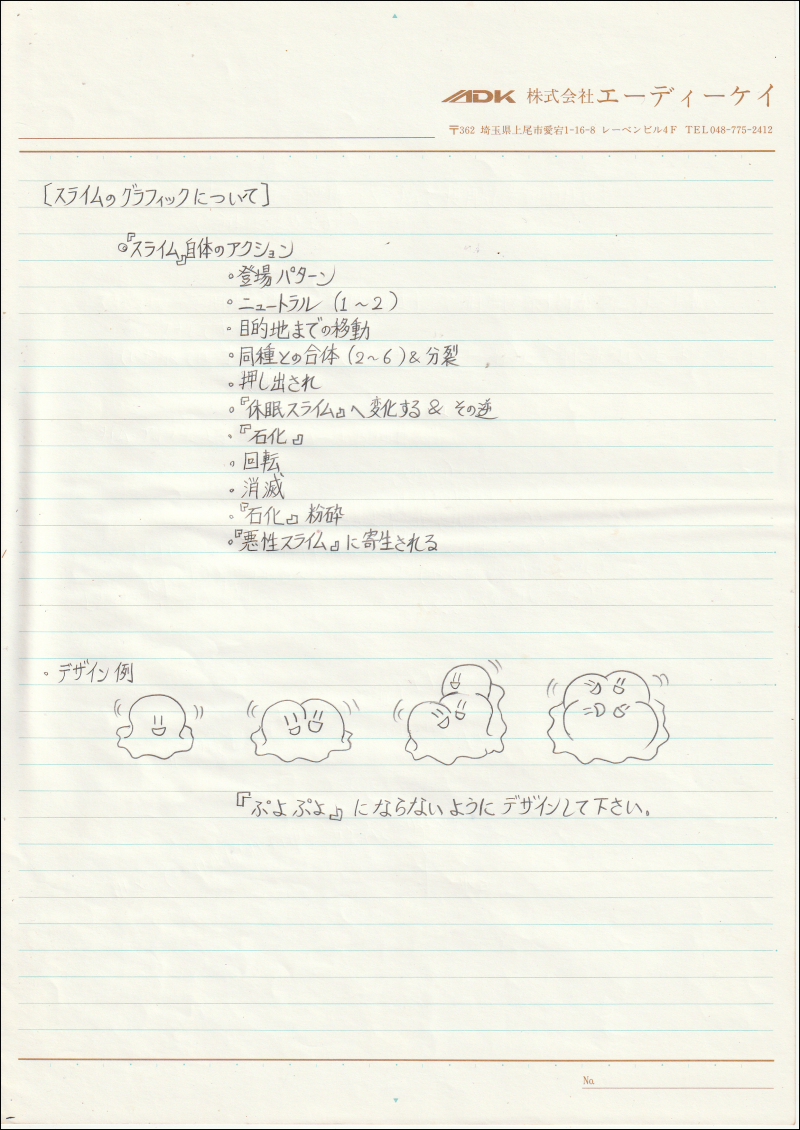 ADK 株式会社エーディーケイ
〒362 埼玉県上尾市愛宕1-16-8 レーベンビル4F TEL048-775-2412
[スライムのグラフィックについて]
◎『スライム』自体のアクション
・登場パターン
・ニュートラル (1～2)
・目的地までの移動
・同種との合体 (2～6) & 分裂
・押し出され
・『休眠スライム』へ変化する & その逆
・『石化』
・回転
・消滅
・『石化』粉砕
・『悪性スライム』に寄生される
・デザイン例
『ぷよぷよ』にならないようにデザインして下さい。
No.